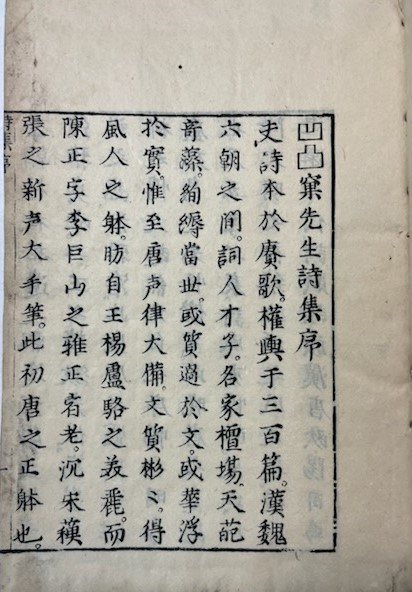 凹凸窠先生詩集序
夫詩本於賡歌。權輿于三百篇。漢魏
六朝之間。詞人才子。名家檀場。天葩
奇藻。絢縟當世。或質過於文。或華浮
於實。惟至唐声律大備。文質彬〻。得
風人之躰。昉自王楊盧駱之羙麗。而
陳正字李巨山之雅正宿老。沉宋蘓
張之新声大手筆。此初唐之正躰也。
詩集序